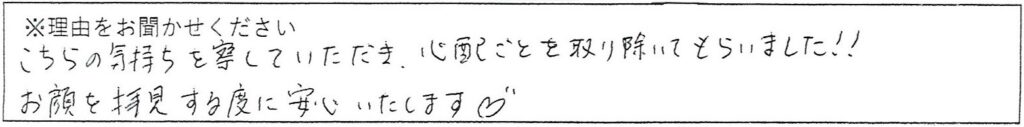 ※理由をお聞かせください
こちらの気持ちを察していただき、心配ごとを取り除いてもらいました!!
お顔を拝見する度に安心いたします♡